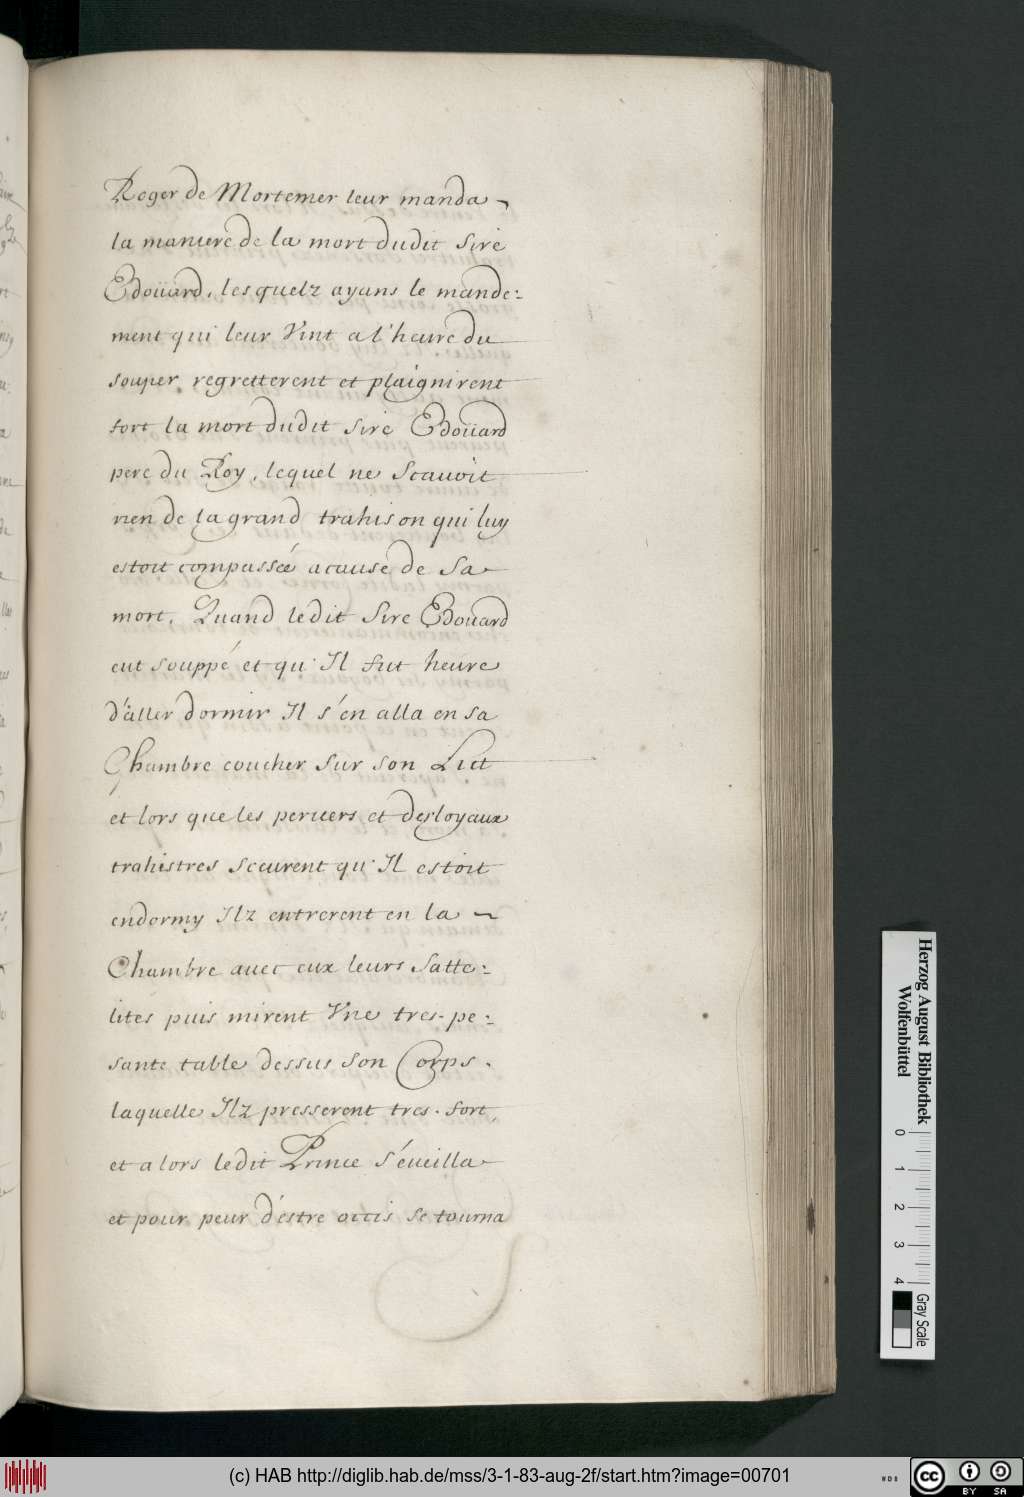 Roger de Mortemer leur manda
la maniere de la mort dudit Sire
Edoüard, lesquelz ayans le mande:
ment qui leur Vint a l'heure du
souper regretterent et plaignirent
fort la mort dudit Sire Edoüard
pere du Roy, lequel ne Scavoit
rien de la grand trahison qui luy
estoit compassée acause de Sa
mort. Quand ledit Sire Edoüard
eut Souppé et qu'Il fut heure
d'aller dormir Il s'en alla en sa
Chambre coucher Sur son Lict
et lors que les peruers et desloyaux
trahistres Sceurent qu'Il estoit
endormy Ilz entrerent en la
Chambre auec eux leurs Satte:
lites puis mirent Vne tres-pe:
sante table dessus Son Corps.
laquelle Ilz presserent tres-fort,
et alors ledit Prince S'éueilla
et pour peur d'estre occis Se tourna
Herzog August Bibliothek
Wolfenbüttel
0 1 2 3 4
Gray Scale
(c) HAB http://diglib.hab.de/mss/3-1-83-aug-2f/start.htm?image=00701
WDB
cc BY SA